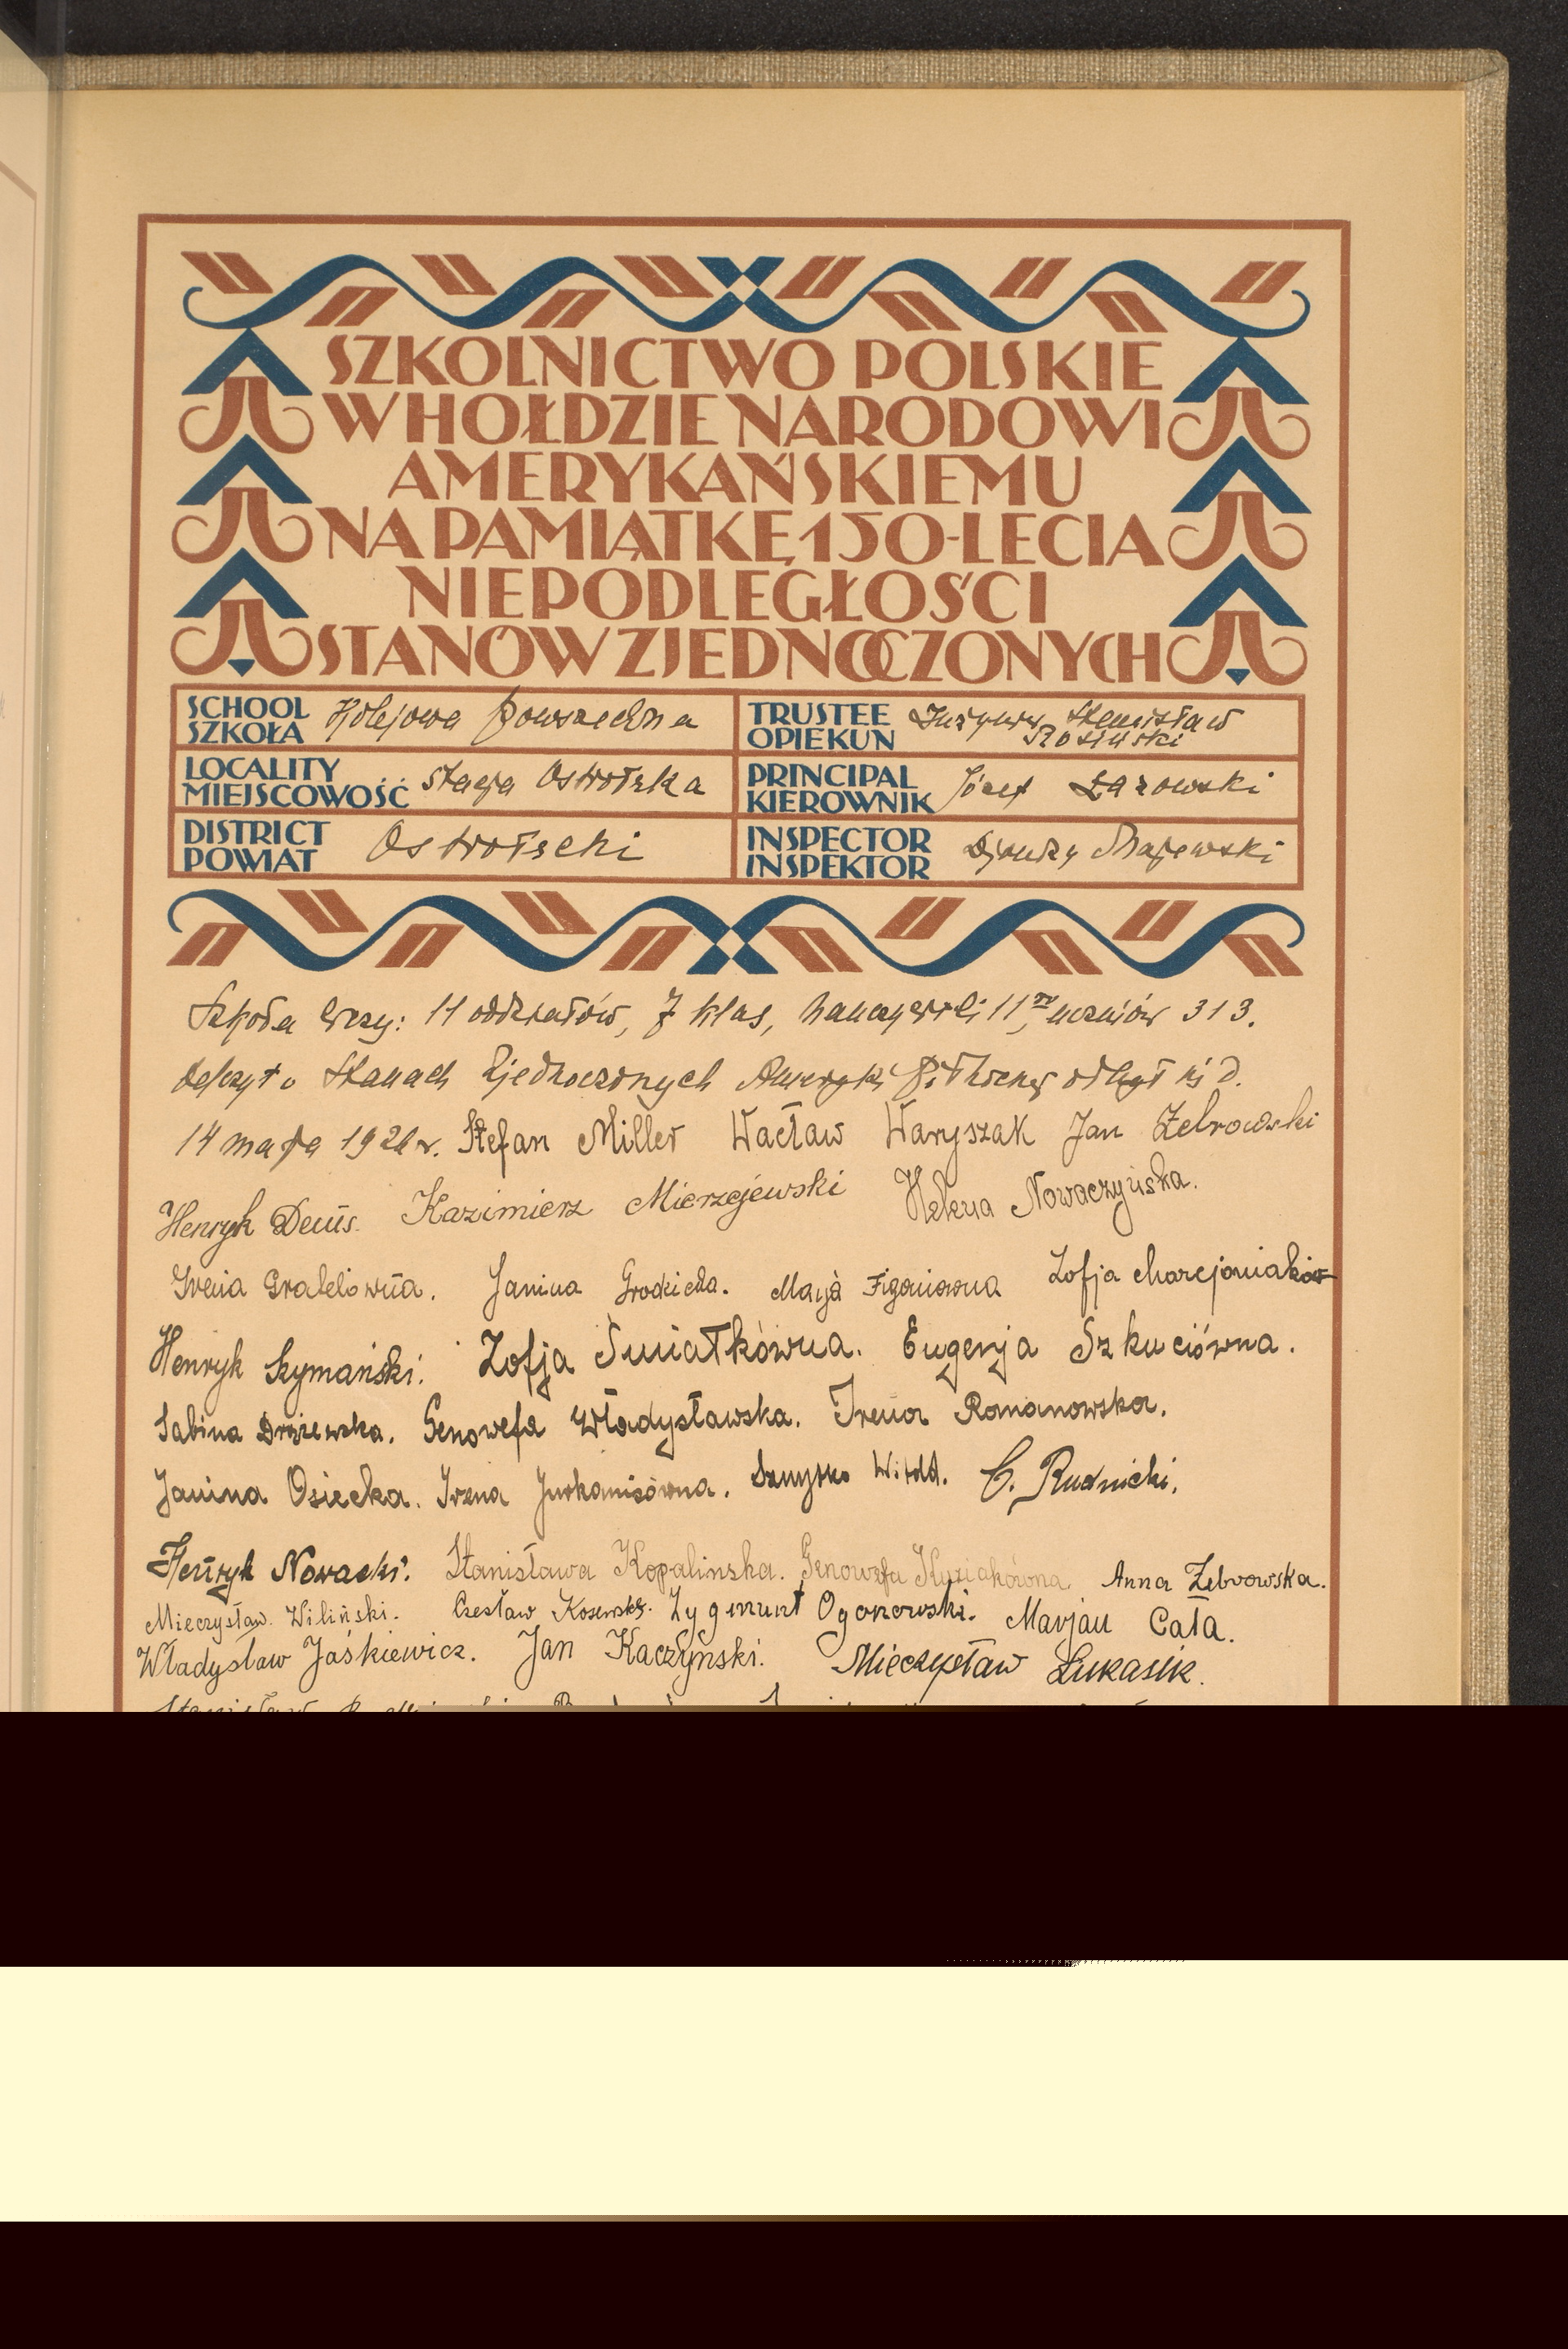 SZKOLNICTWO POLSKIE
W HOŁDZIE NARODOWI
AMERYKAŃSKIEMU
NA PAMIĄTKĘ 150-LECIA
NIEPODLEGŁOŚCI
STANÓW ZJEDNOCZONYCH
SCHOOL SZKOŁA Kolejowa Powszechna
TRUSTEE OPIEKUN Inżynier Stanisław Rosiński
LOCALITY MIEJSCOWOŚĆ Stacja Ostrołęka
PRINCIPAL KIEROWNIK Józef Łazowski
DISTRICT POWIAT Ostrołęcki
INSPECTOR INSPEKTOR Majewski
Szkoła liczy: 11 oddziałów, 7 klas, nauczycieli 11, uczniów 313.
Odczyt o Stanach Zjednoczonych Ameryki Północnej odbył się d.
14 maja 1926 r. Stefan Miller Wacław Waryszak Jan Żebrowski
Henryk Kazimierz Mierzejewski Helena Nowaczyńska.
Irena Janina Grodzicka. Zofja
Henryk Szymański. Zofja Świątkówna. Eugenja Szkuciówna.
Sabina Genowefa Władysławska. Irena Romanowska.
Janina Osiecka. Irena Szmytko Witold. C. Rudnicki.
Henryk Nowacki. Stanisława Kopalinska. Genowefa Anna Żebrowska.
Mieczysław Wiliński. Czesław Zygmunt Ogonowski. Marjan Cała.
Władysław Jaśkiewicz. Jan Kaczyński. Mieczysław Łukasik.